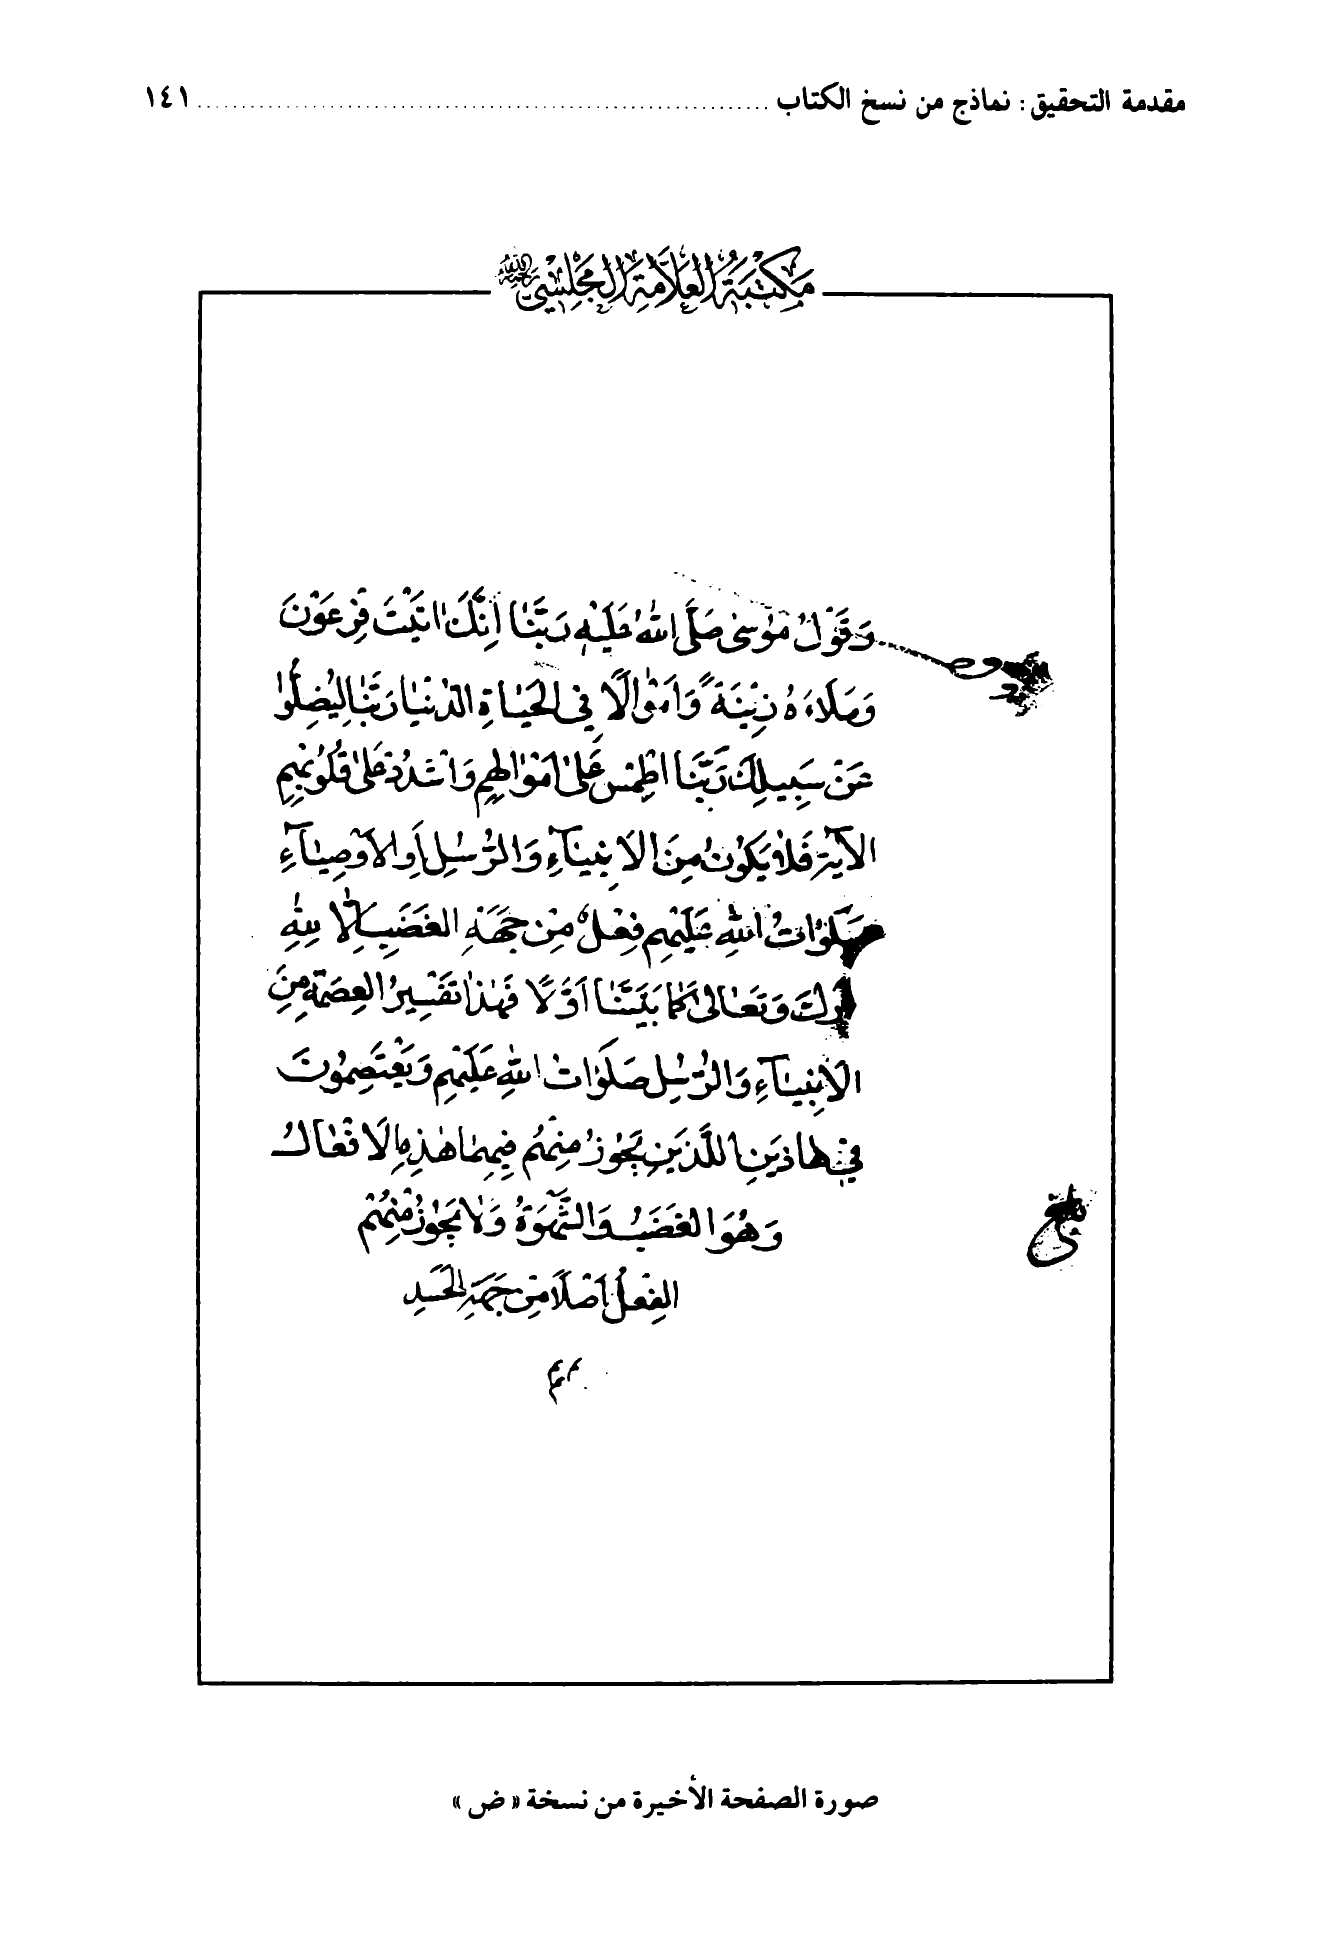 مقدمة التحقيق : نماذج من نسخ الكتاب ........................................ ١٤١
مكتبة العلامة المجلسي رحمه الله
وَقَوْلُ مُوسىٰ صَلَّى اللهُ عَلَيْهِ رَبَّنَا إِنَّكَ اتَيْتَ فِرْعَوْنَ
وَمَلَاءَهُ زِينَةً وَاَمْوٰالًا فِي الْحَيٰاةِ الدُّنْيٰا رَبَّنٰا لِيُضِلُّوا
عَنْ سَبِيلِكَ رَبَّنَا اطْمِسْ عَلىٰ اَمْوٰالِهِمْ وَاشْدُدْ عَلىٰ قُلُوبِهِمْ
الْآيَة فَلٰا يَكُونُ مِنَ الْاَنْبِيٰآءِ وَالرُّسُلِ اَوِ الْاَوْصِيٰآءِ
صَلَوٰاتُ اللهِ عَلَيْهِمْ فِعْلٌ مِنْ جِهَةِ الْغَضَبِ اِلّٰا لِلّٰهِ
رَكَ وَتَعٰالىٰ كَمٰا بَيَّنَّا اَوَّلًا فَهٰذٰا تَفْسِيرُ الْعِصْمَةِ مِنَ
الْاَنْبِيٰآءِ وَالرُّسُلِ صَلَوٰاتُ اللهِ عَلَيْهِمْ وَيَعْتَصِمُونَ
فِي هٰاذَيْنِ اللَّذَيْنِ يَجُوزُ مِنْهُمْ فِيهِمٰا هٰذِهِ الْاَفْعٰالُ
وَهُوَ الْغَضَبُ وَالشَّهْوَةُ وَلٰا يَجُوزُ مِنْهُمْ
الْفِعْلُ اَصْلًا مِنْ جِهَةِ الْحَسَدِ
صورة الصفحة الأخيرة من نسخة « ض »